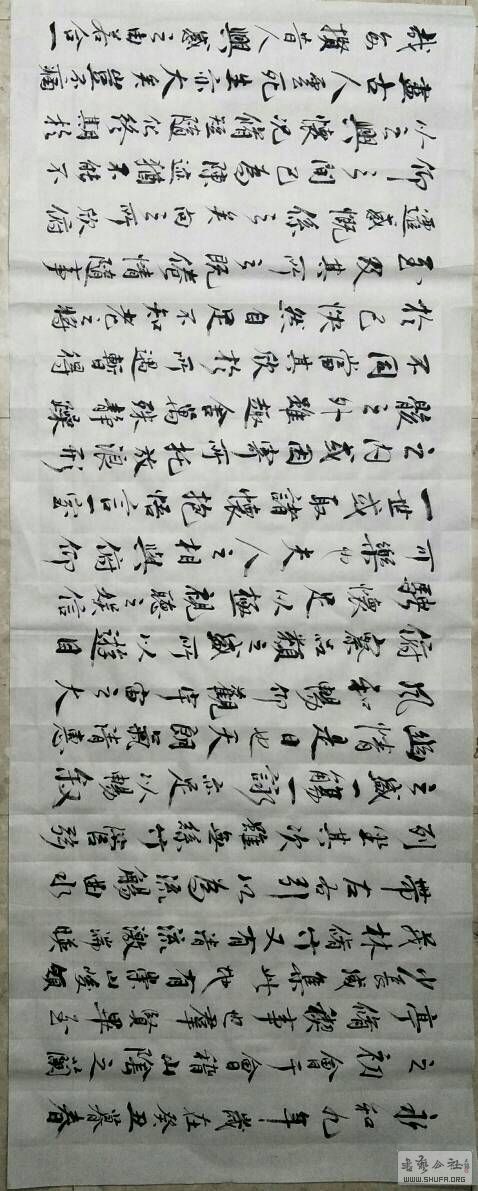 永和九年歲在癸丑暮春
之初會于會稽山陰之蘭
亭脩禊事也群賢畢至
少長咸集此地有崇山峻領
茂林脩竹又有清流激湍暎
帶左右引以為流觴曲水
列坐其次雖無絲竹管弦
之盛一觴一詠亦足以暢叙
幽情是日也天朗氣清惠
風和暢仰觀宇宙之大
俯察品類之盛所以遊目
騁懷足以極視聽之娛信
可樂也夫人之相與俯仰
一世或取諸懷抱悟言一室
之內或因寄所托放浪形
骸之外雖趣舍萬殊靜躁
不同當其欣於所遇暫得
於己快然自足不知老之將
至及其所之既惓情隨事
遷感慨係之矣向之所欣俯
仰之間已為陳迹猶不能不
以之興懷況脩短隨化終期於
盡古人云死生亦大矣豈不痛
哉每攬昔人興感之由若合一
WWW.SHUFA.ORG